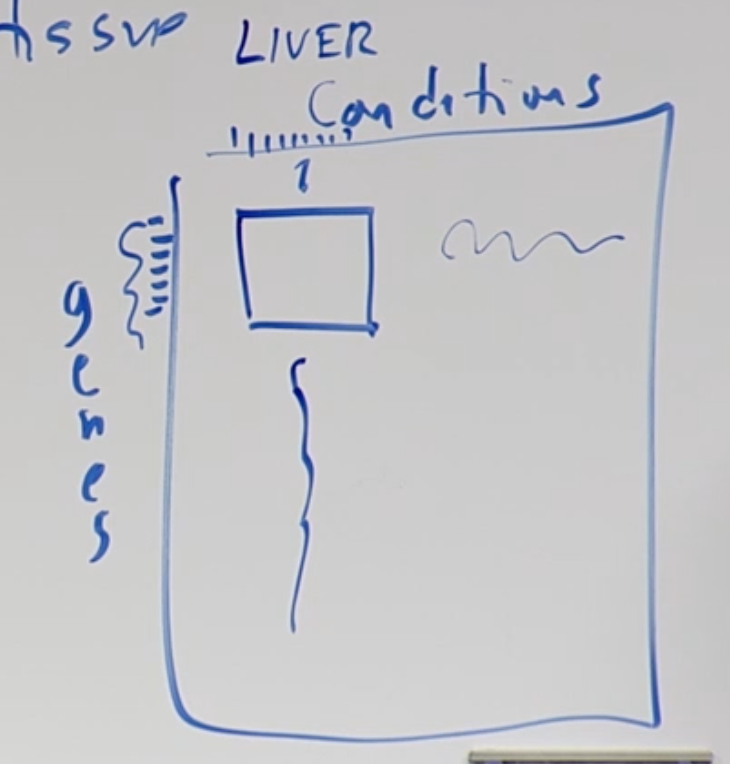 tissue LIVER
Conditions
genes